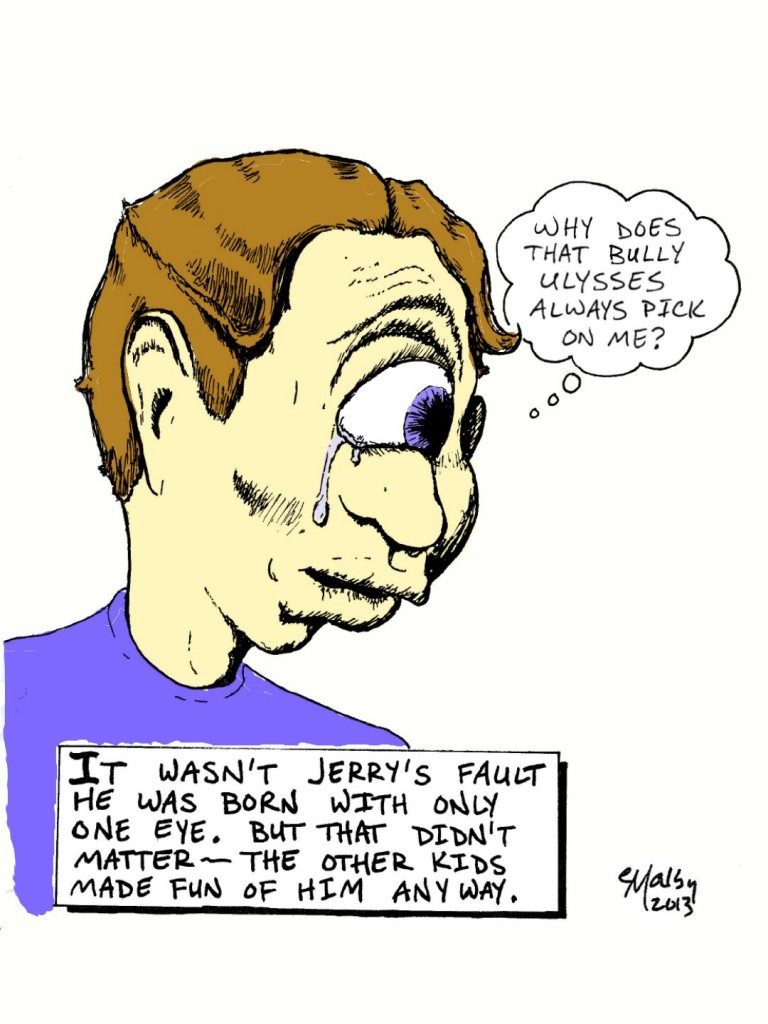 WHY DOES
THAT BULLY
ULYSSES
ALWAYS PICK
ON ME?
IT WASN'T JERRY'S FAULT
HE WAS BORN WITH ONLY
ONE EYE. BUT THAT DIDN'T
MATTER — THE OTHER KIDS
MADE FUN OF HIM ANYWAY.
SMalby
2013